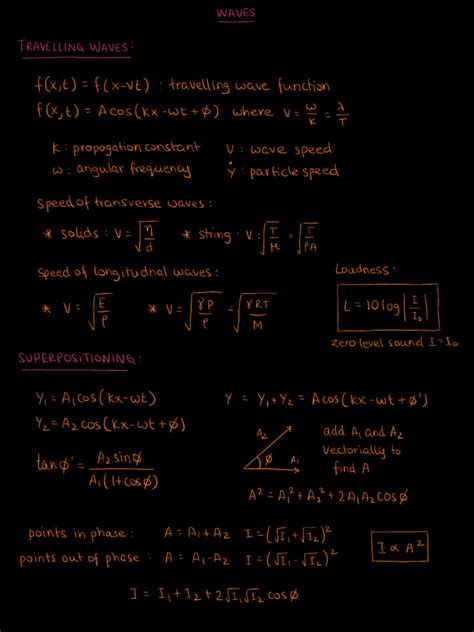 WAVES
TRAVELLING WAVES:
f(x,t) = f(x-vt) : travelling wave function
f(x,t) = Acos(kx-wt+ϕ) where v = ω/k = λ/T
k : propogation constant v : wave speed
ω : angular frequency ẏ : particle speed
speed of transverse waves :
* solids : v = √(η/d) * string : v = √(T/μ) = √(T/ρA)
speed of longitudnal waves : Loudness :
* v = √(E/ρ) * v = √(γP/ρ) = √(γRT/M) L = 10log|I/I₀|
zero level sound I = I₀
SUPERPOSITIONING :
Y₁ = A₁cos(kx-wt) Y = Y₁+Y₂ = Acos(kx-wt+ϕ')
Y₂ = A₂cos(kx-wt+ϕ)
tanϕ' = A₂sinϕ/A₁(1+cosϕ) A₂ ϕ A₁ add A₁ and A₂
vectorially to
find A
A² = A₁²+A₂²+2A₁A₂cosϕ
points in phase : A = A₁+A₂ I = (√I₁+√I₂)²
points out of phase : A = A₁-A₂ I = (√I₁-√I₂)² I ∝ A²
I = I₁+I₂+2√I₁√I₂ cosϕ